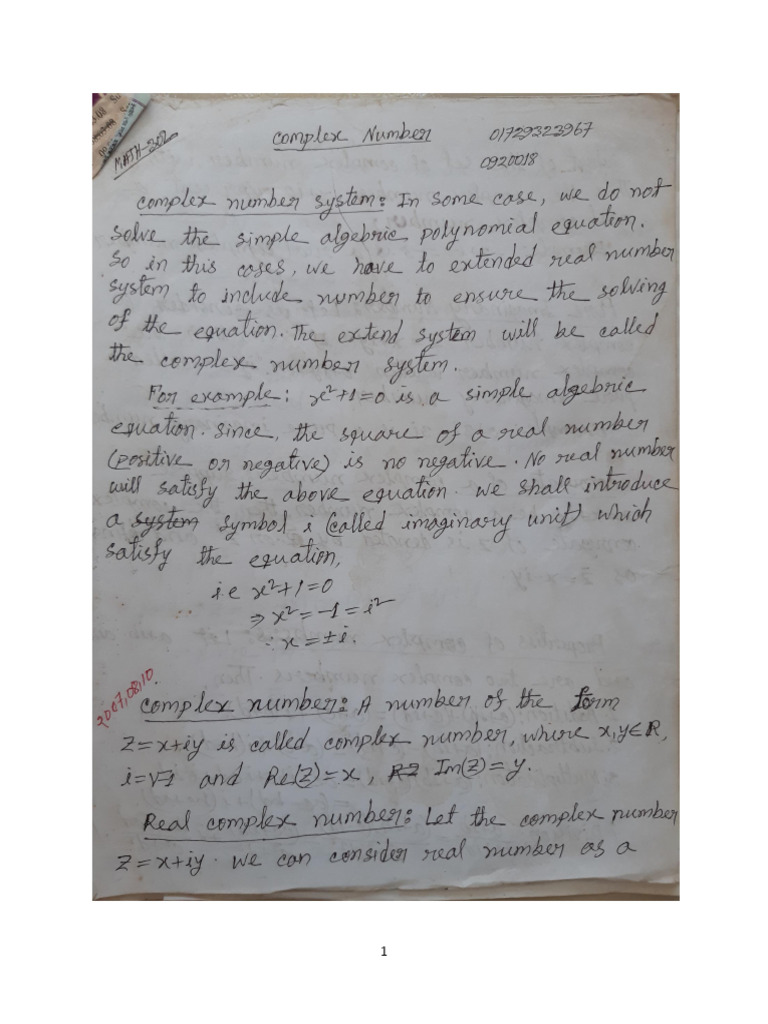 MATH-302
Complex Number
01729323967
0920018
complex number system: In some case, we do not
solve the simple algebric polynomial equation.
So in this cases, we have to extended real number
system to include number to ensure the solving
of the equation. The extend system will be called
the complex number system.
For example: x²+1=0 is a simple algebric
equation. Since, the square of a real number
(positive or negative) is no negative. No real number
will satisfy the above equation. we shall introduce
a system symbol i (called imaginary unit) which
satisfy the equation,
i.e x²+1=0
⇒ x² = -1 = i²
∴ x = ±i.
2007,08,10.
complex number: A number of the form
Z=x+iy is called complex number, where x,y∈R,
i=√-1 and Re(Z)=x, Im(Z)=y.
Real complex number: Let the complex number
Z=x+iy. We can consider real number as a
1